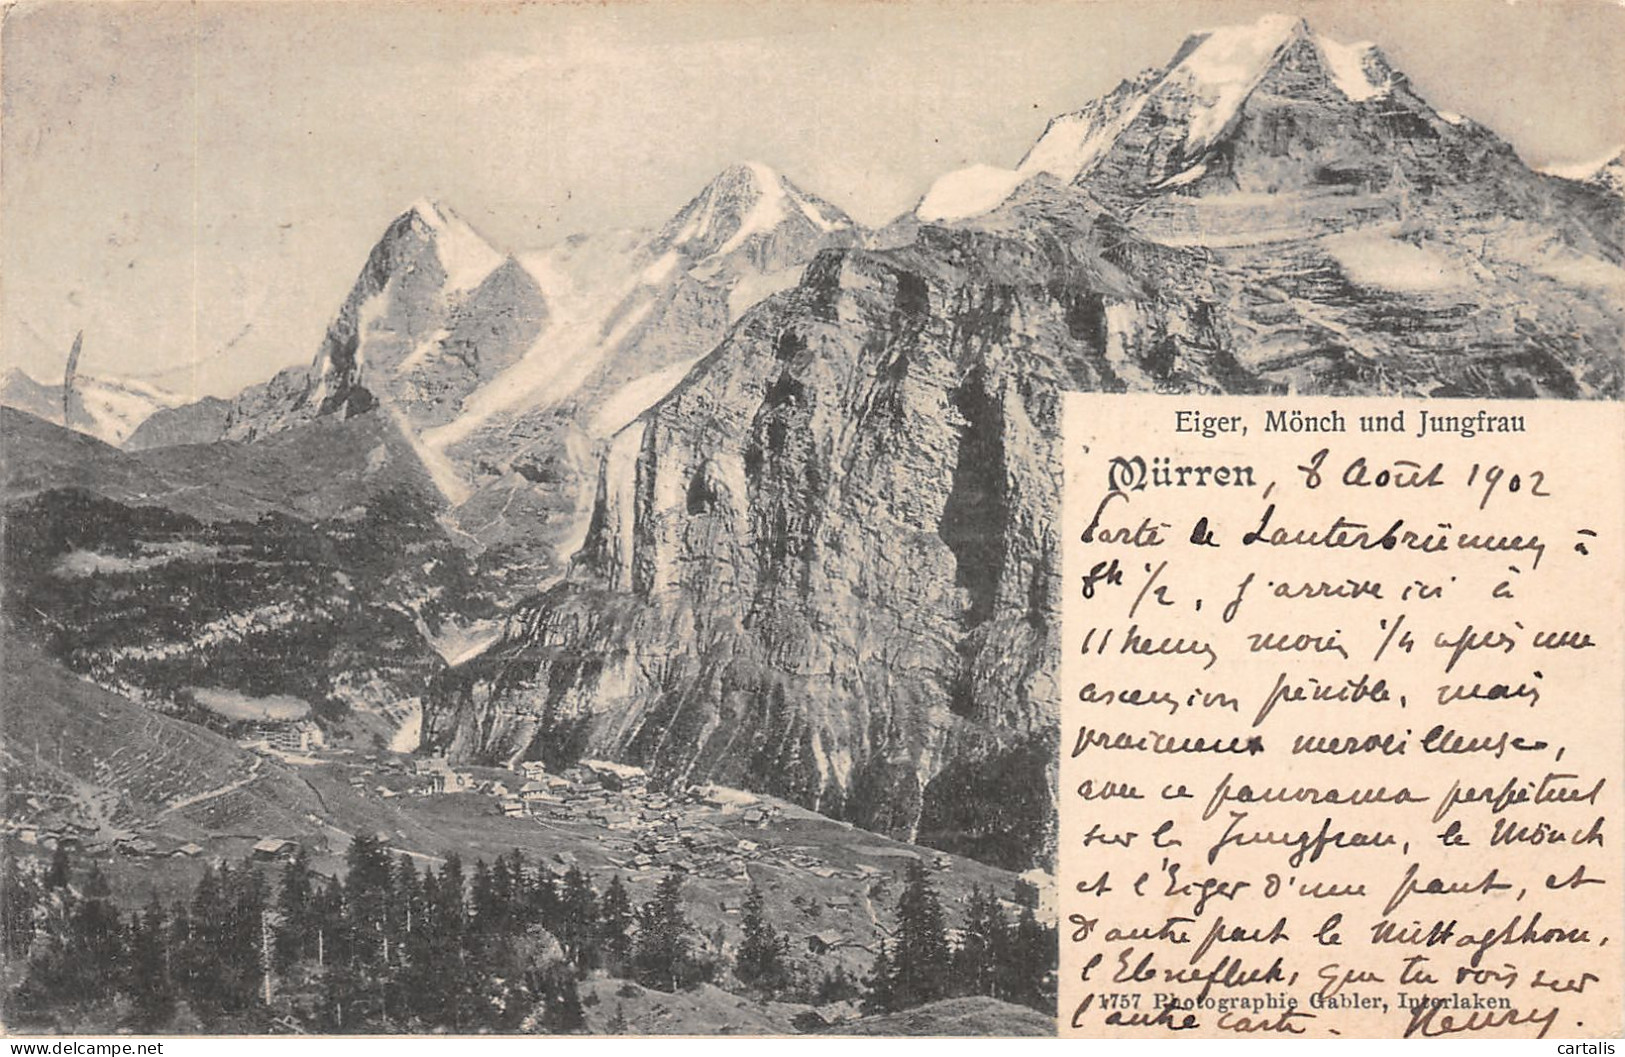 Eiger, Mönch und Jungfrau
Mürren, 8 Août 1902
Parti de Lauterbrünnen à
8h 1/2, j'arrive ici à
11 heures moins 1/4 après une
ascension pénible, mais
vraiment merveilleuse,
avec ce panorama perpétuel
sur la Jungfrau, le Mönch
et l'Eiger d'une part, et
d'autre part le Mittaghorn,
l'Ebnefluh, que tu vois sur
1757 Photographie Gabler, Interlaken
l'autre carte. Henry.
cartalis